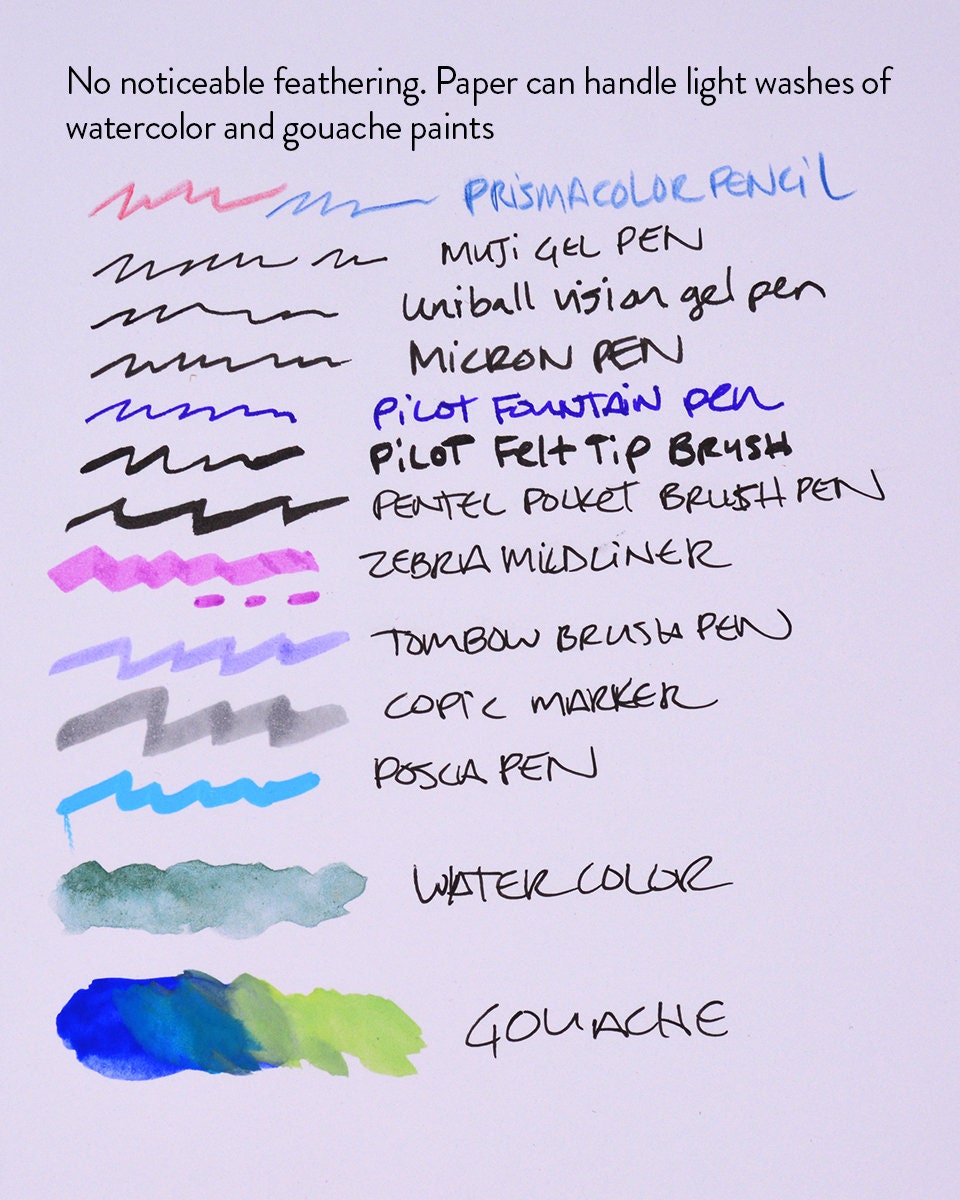 No noticeable feathering. Paper can handle light washes of
watercolor and gouache paints
PRISMACOLOR PENCIL
MUJI GEL PEN
Uniball vision gel pen
MICRON PEN
PILOT FOUNTAIN PEN
PILOT Felt Tip BRUSH
PENTEL POCKET BRUSH PEN
ZEBRA MILDLINER
TOMBOW BRUSH PEN
COPIC MARKER
POSCA PEN
WATERCOLOR
GOUACHE